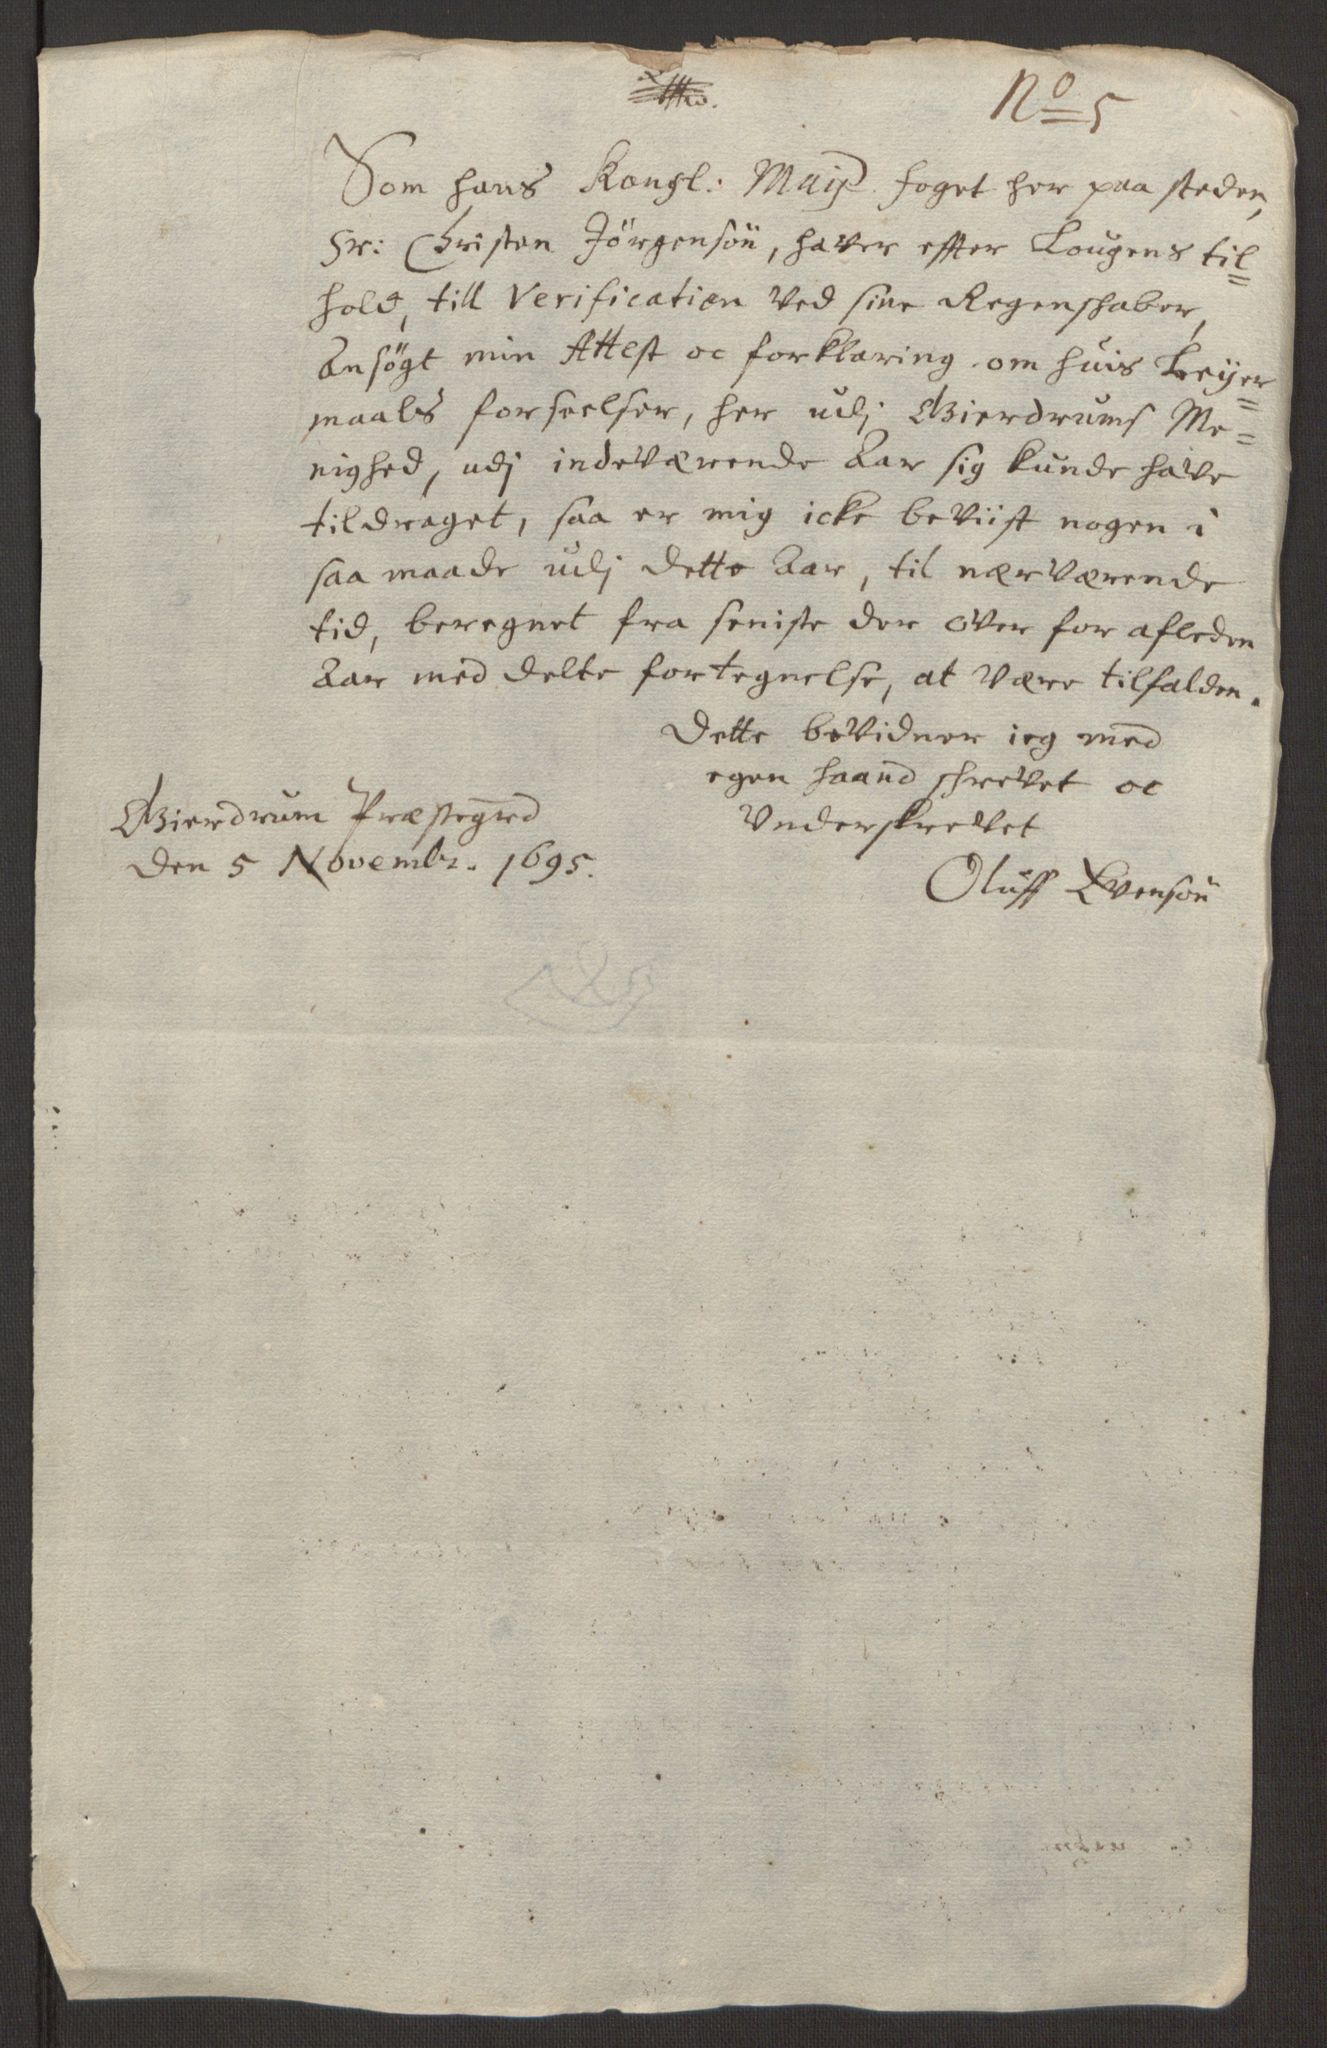 No 5
Som hans Kongl: Mai: foget her paa steden,
Sr: Christen Jörgensön, haver effter Lougens til=
hold, till Verification Ved sine Regenschaber,
Ansögt min Attest oc forklaring om huis Leyer=
maals forseelser, her udj Gierdrums Me=
nighed, udj indeværende Aar sig kunde have
tildraget, saa er mig icke beviist nogen i
saa maade udj dette Aar, til nærværende
tid, beregnet fra seniste der over for afleden
Aar med delte fortegnelse, at være tilfalden.
Dette bevidner ieg med
egen haand schrevet oc
Underskrevet
Gierdrum Præstegrd
den 5 Novembr. 1695.
Oluff Evensön